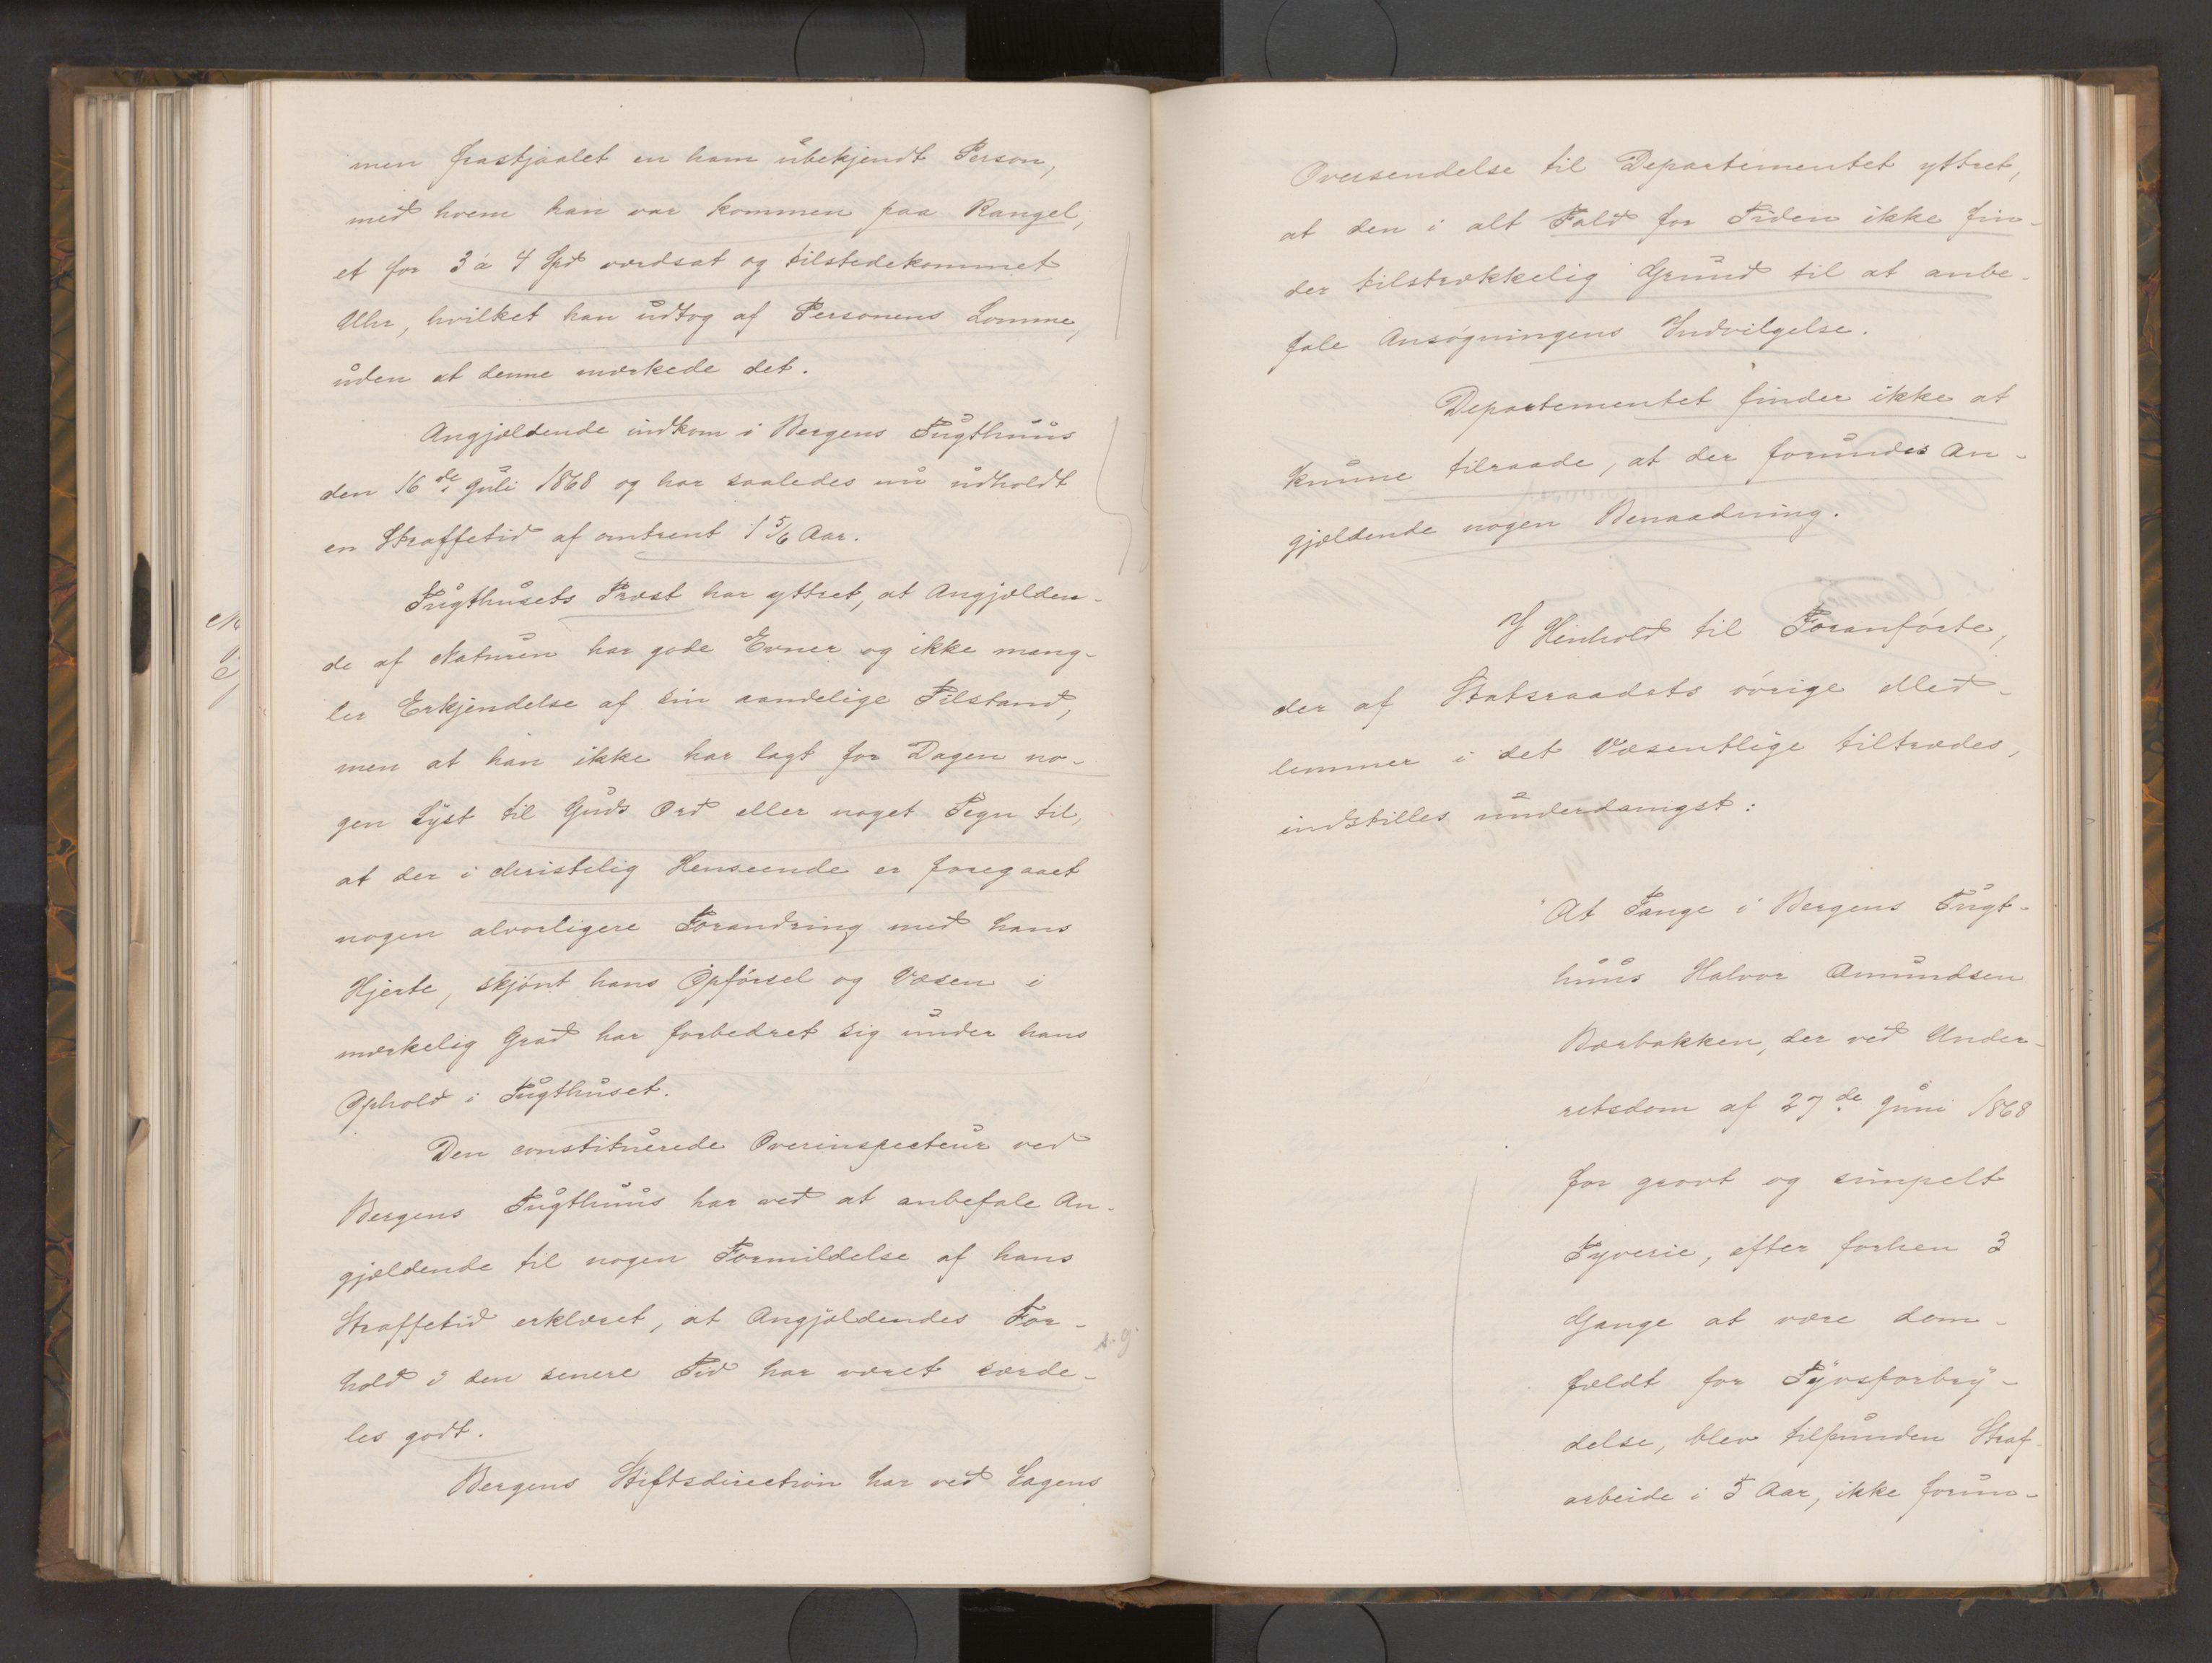 men frastjaalet en ham ubekjendt Person,
med hvem han var kommen paa Rangel,
et for 3 à 4 Spd værdsat og tilstedekommet
Uhr, hvilket han udtog af Personens Lomme,
uden at denne mærkede det.
Angjældende indkom i Bergens Tugthuus
den 16de Juli 1868 og har saaledes nu udholdt
en Straffetid af omtrent 1 5/6 Aar.
Tugthusets Præst har yttret, at Angjælden-
de af Naturen har gode Evner og ikke mang-
ler Erkjendelse af sin aandelige Tilstand,
men at han ikke har lagt for Dagen no-
gen Lyst til Guds Ord eller noget Tegn til,
at der i christelig Henseende er foregaaet
nogen alvorligere Forandring med hans
Hjerte, skjønt hans Opførsel og Væsen i
mærkelig Grad har forbedret sig under hans
Ophold i Tugthuset.
Den constituerede Overinspecteur ved
Bergens Tugthuus har ved at anbefale An-
gjældende til nogen Formildelse af hans
Straffetid erklæret, at Angjældendes For-
hold i den senere Tid har været særde-
les godt.
Bergens Stiftsdirection har ved Sagens
Oversendelse til Departementet yttret,
at den i alt Fald for Tiden ikke fin-
der tilstrækkelig Grund til at anbe-
fale Ansøgningens Indvilgelse.
Departementet finder ikke at
kunne tilraade, at der forundes An-
gjældende nogen Benaadning.
I Henhold til Foranførte,
der af Statsraadets øvrige Med-
lemmer i det Væsentlige tiltrædes,
indstilles underdanigst:
At Fange i Bergens Tugt-
huus Halvor Amundsen
Bærbakken, der ved Under-
retsdom af 27de Juni 1868
for grovt og simpelt
Tyverie, efter forhen 3
Gange at være dom-
fældt for Tyvsforbry-
delse, blev tilfunden Straf-
arbeide i 5 Aar, ikke forun-